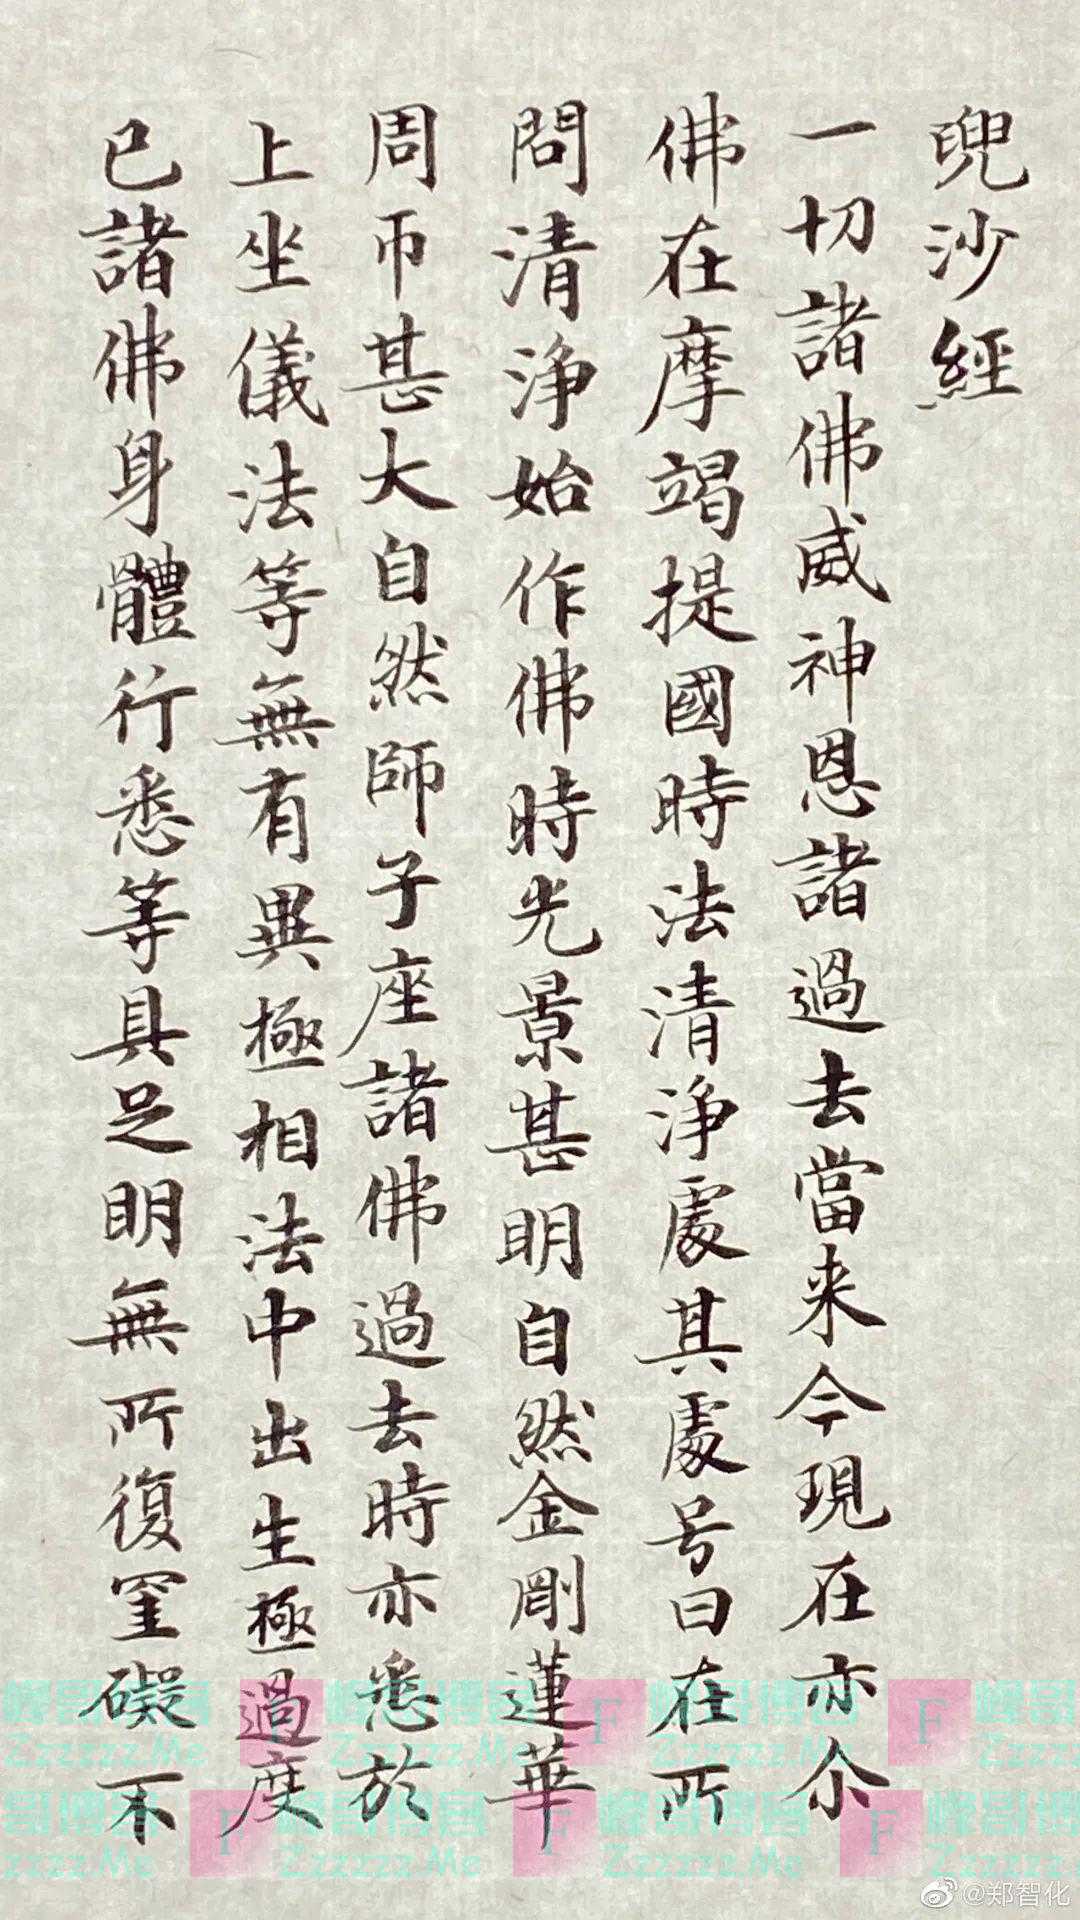 兜沙經
一切諸佛威神恩諸過去當来今現在亦尒
佛在摩竭提國時法清淨處其處号曰在所
問清淨始作佛時光景甚明自然金剛蓮華
周帀甚大自然師子座諸佛過去時亦悉於
上坐儀法等無有異極相法中出生極過度
已諸佛身體行悉等具足明無所復罣礙不
Zzzzzz.Me
F
@郑智化